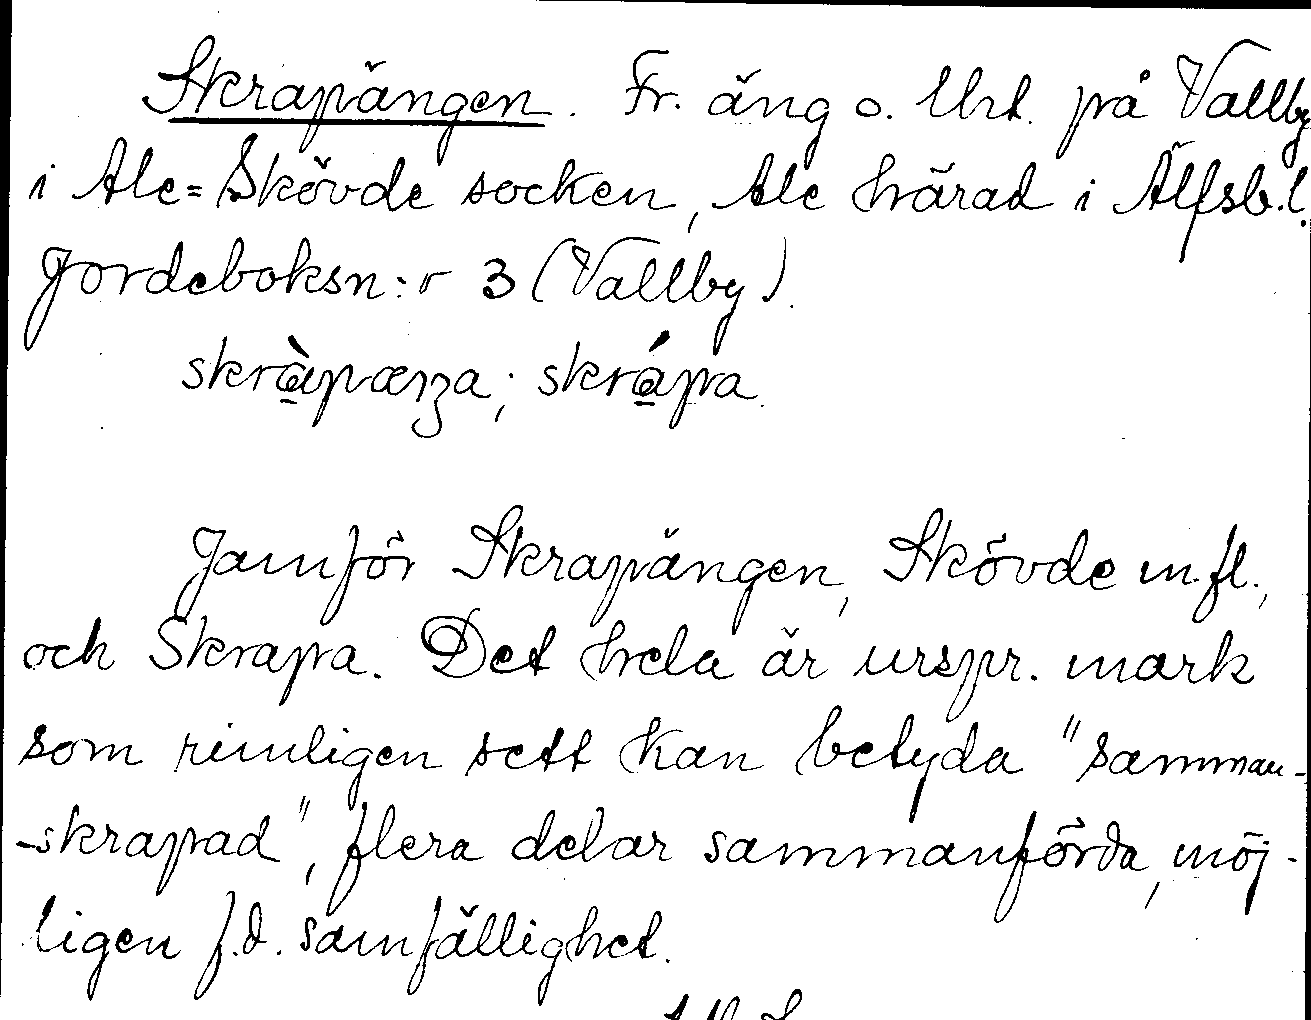 Skrapängen. Fr. äng o. Urt. på Vallby
i Ale=Skövde socken, Ale härad i Älfsb.l.
Jordeboksn:r 3 (Vallby).
skràpæŋa; skrápa.
Jamför Skrapängen, Skövde m.fl.,
och Skrapa. Det hela är urspr. mark
som rimligen sett kan betyda "samman-
-skrapad", flera delar sammanförda, möj-
ligen f.d. samfällighet.